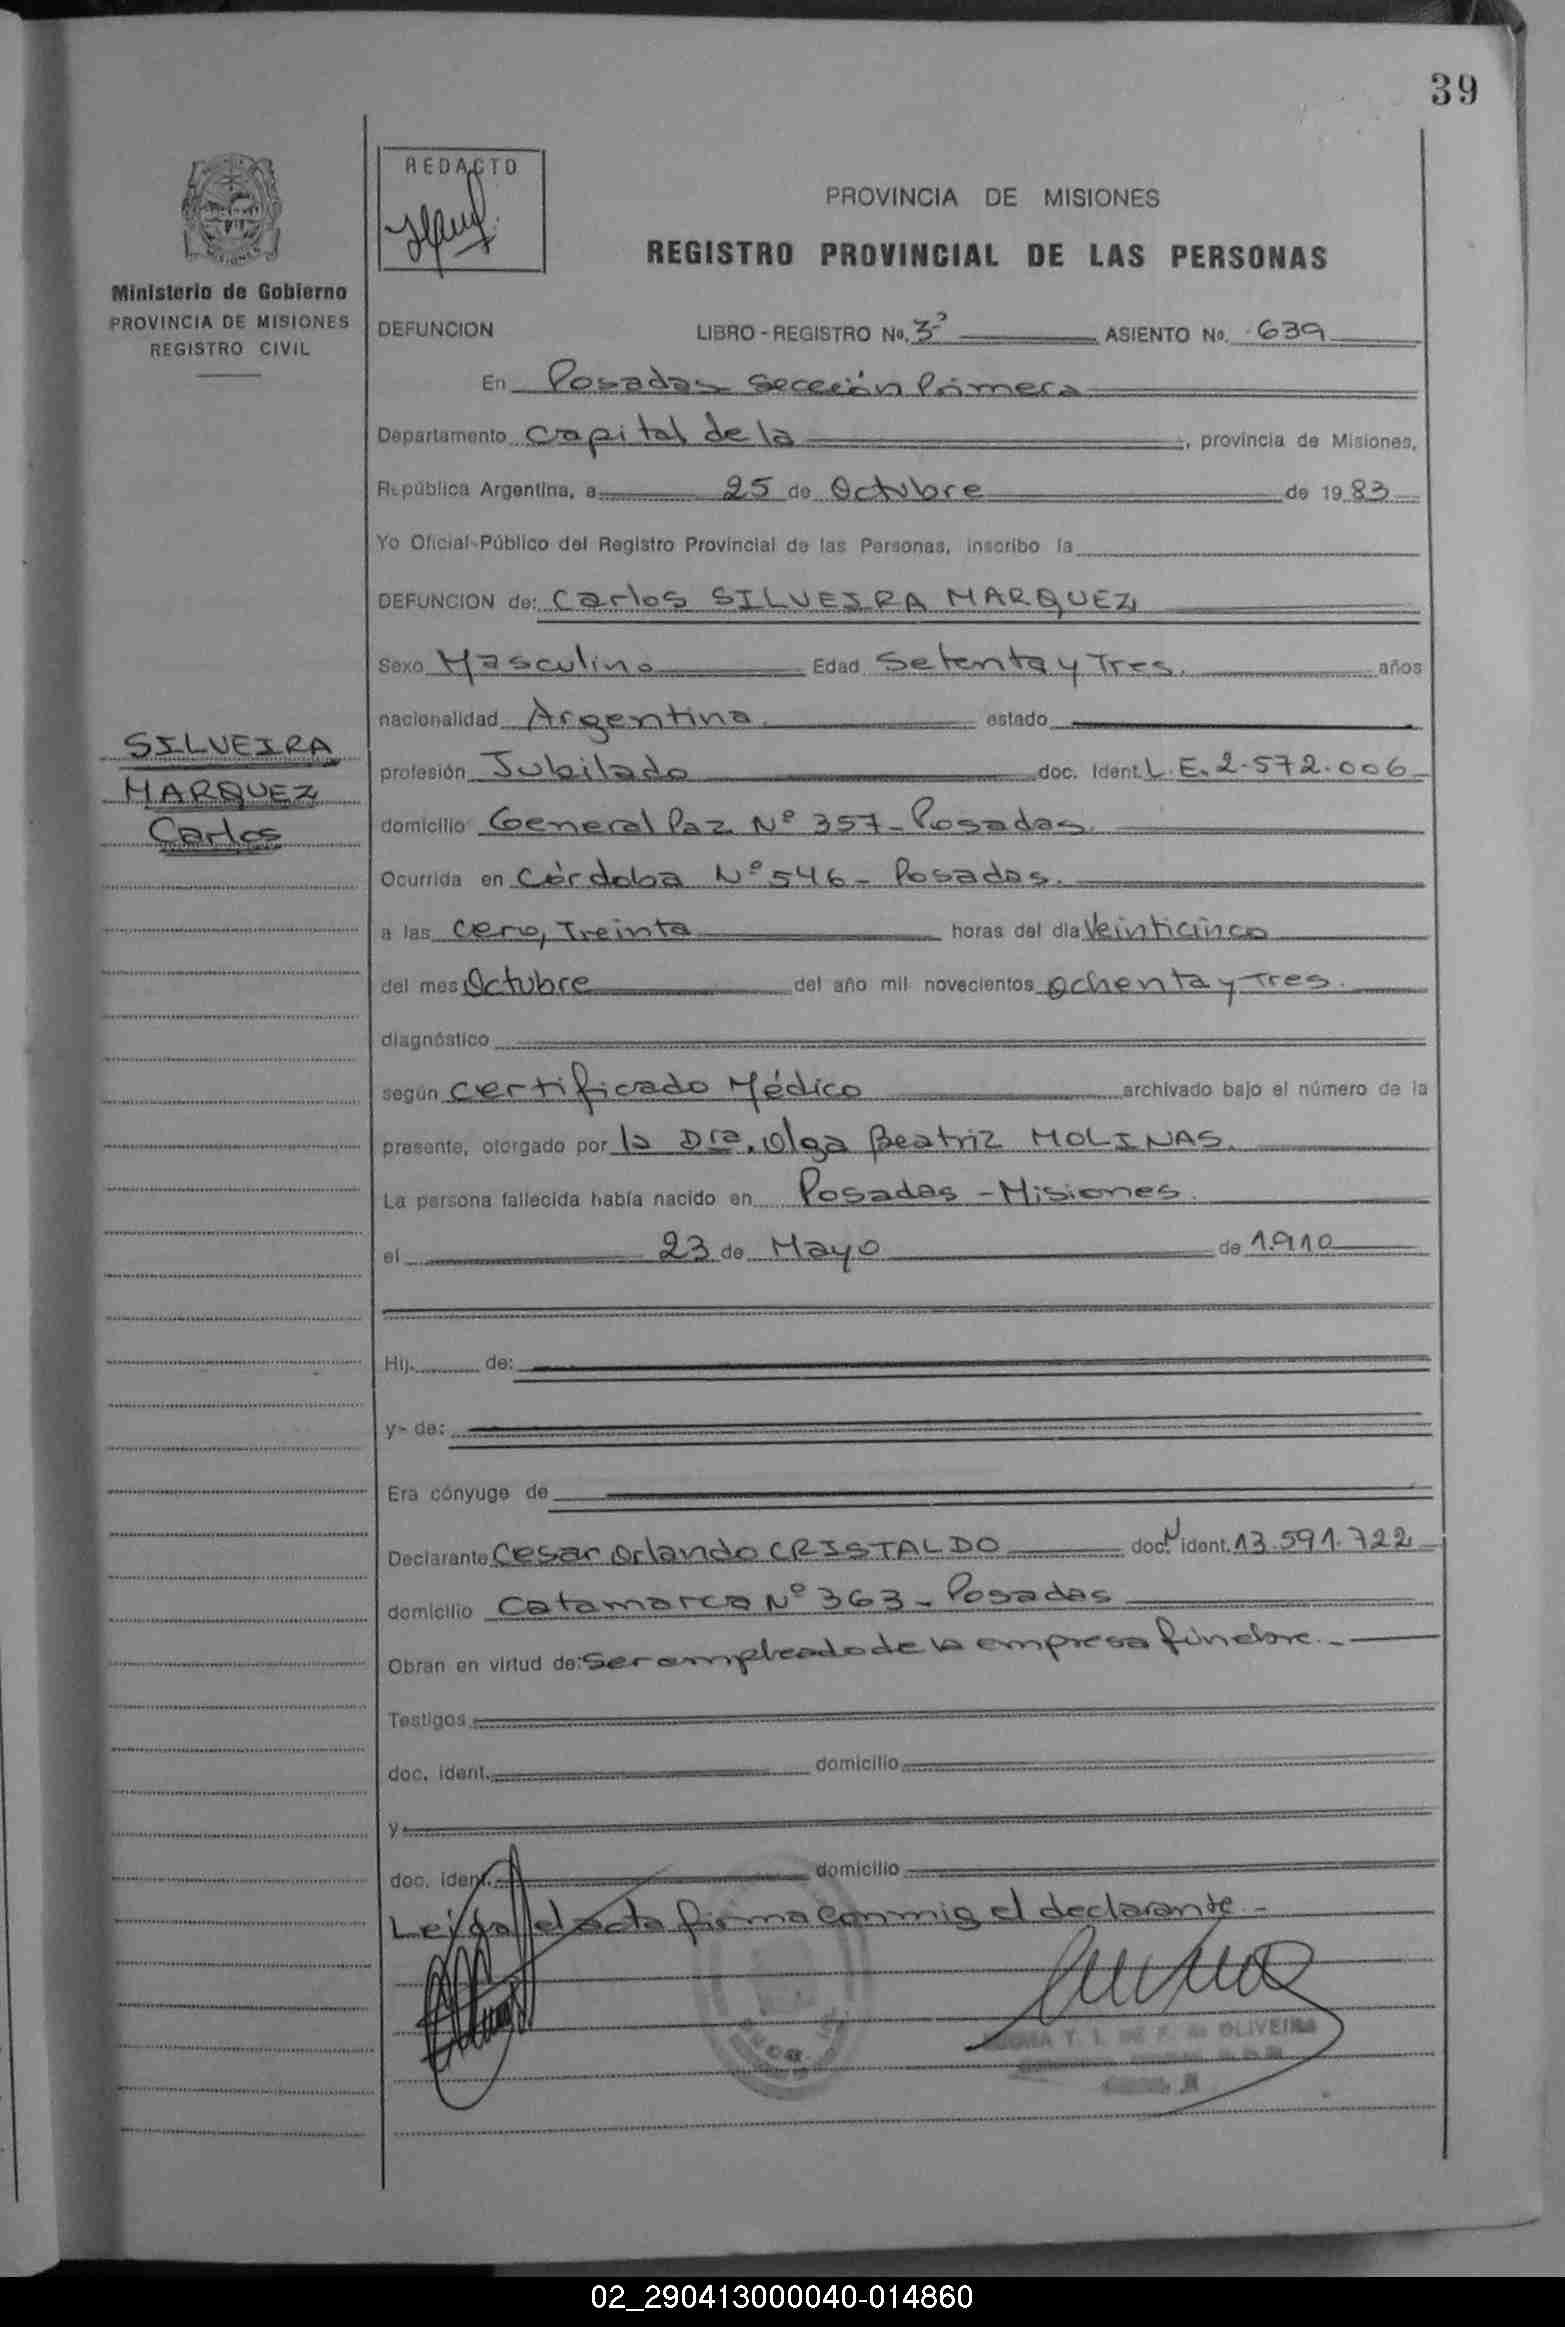 39
REDACTO
PROVINCIA DE MISIONES
REGISTRO PROVINCIAL DE LAS PERSONAS
Ministerio de Gobierno
PROVINCIA DE MISIONES
REGISTRO CIVIL
DEFUNCION LIBRO-REGISTRO No. 3º ASIENTO No. 639
En Posadas Sección Primera
Departamento Capital de la, provincia de Misiones,
República Argentina, a 25 de Octubre de 1983
Yo Oficial Público del Registro Provincial de las Personas, inscribo la
DEFUNCION de: Carlos SILVEIRA MARQUEZ
Sexo Masculino Edad Setenta y Tres. años
nacionalidad Argentina estado
SILVEIRA
MARQUEZ
Carlos
profesión Jubilado doc. Ident. L.E. 2.572.006
domicilio General Paz Nº 357 - Posadas.
Ocurrida en Córdoba Nº 546 - Posadas.
a las cero, Treinta horas del día Veinticinco
del mes Octubre del año mil novecientos ochenta y Tres.
diagnóstico
según Certificado Médico archivado bajo el número de la
presente, otorgado por la Dra. Olga Beatriz MOLINAS.
La persona fallecida había nacido en Posadas - Misiones.
el 23 de Mayo de 1.910
Hij. de:
y- de:
Era cónyuge de
Declarante Cesar Orlando CRISTALDO doc. ident. 13.591.722
domicilio Catamarca Nº 363 - Posadas
Obran en virtud de: Ser empleado de la empresa fúnebre.-
Testigos
doc. ident. domicilio
y
doc. ident. domicilio
Leída el acta firma conmigo el declarante.-
OLIVEIRA
02_290413000040-014860